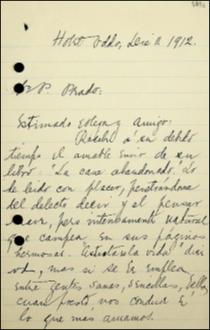 Hotel Oddo, Dic. 1912.
Sr P. Prado:
Estimado colega y amigo:
Recibí a su debido
tiempo el amable envío de su
libro "La casa abandonada". Lo
he leído con placer, penetrándome
del selecto decir y el pensar
suave, pero intensamente natural
que campea en sus páginas
hermosas. la vida
mas si se la emplea
entre gentes sanas, sencillas, bellas,
cuan presto nos conduce a
lo que más amamos!